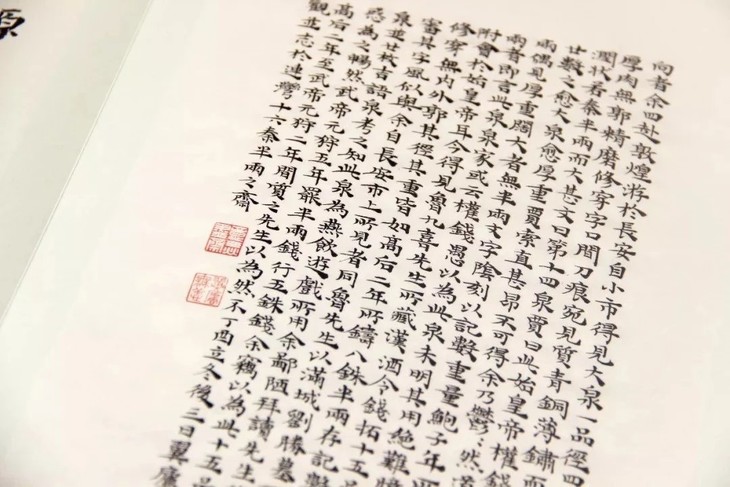 向者余四赴敦煌游於長安自小市得見大泉一品徑四
厚肉無郭精磨修穿字口間刀痕宛見質青銅薄鏽而
潤狀看泰半兩而大甚文曰第十四泉賈曰此始皇帝權錢
廿數之愈大泉愈厚重賈索直甚昂不可得余乃鬱:然
兩偶見厚重闊大者無半兩文字陰刻以記數重量鮑子年
兩者即言此泉泉家或云權錢愚以為此泉未明其用絕難
附會於始皇帝耳今得見魯九喜先生所藏漢酒令錢拓十五
修穿無內外郭其徑其重皆如高后二年所鑄八銖半兩存記數
審其字風似與余自長安市上所見者同魯先生以滿城劉勝墓
泉並廿枚吉語泉考之知此泉為燕飲遊戲所用余鄙陋拜讀先生
惑為之暢然武帝元狩五年罷半兩錢行五銖錢余竊以為此十五品
高后二年至武帝元狩二年間質之先生以為然不丁酉立冬後三日翼廬
觀並志於連灣十六泰半兩之齋
源